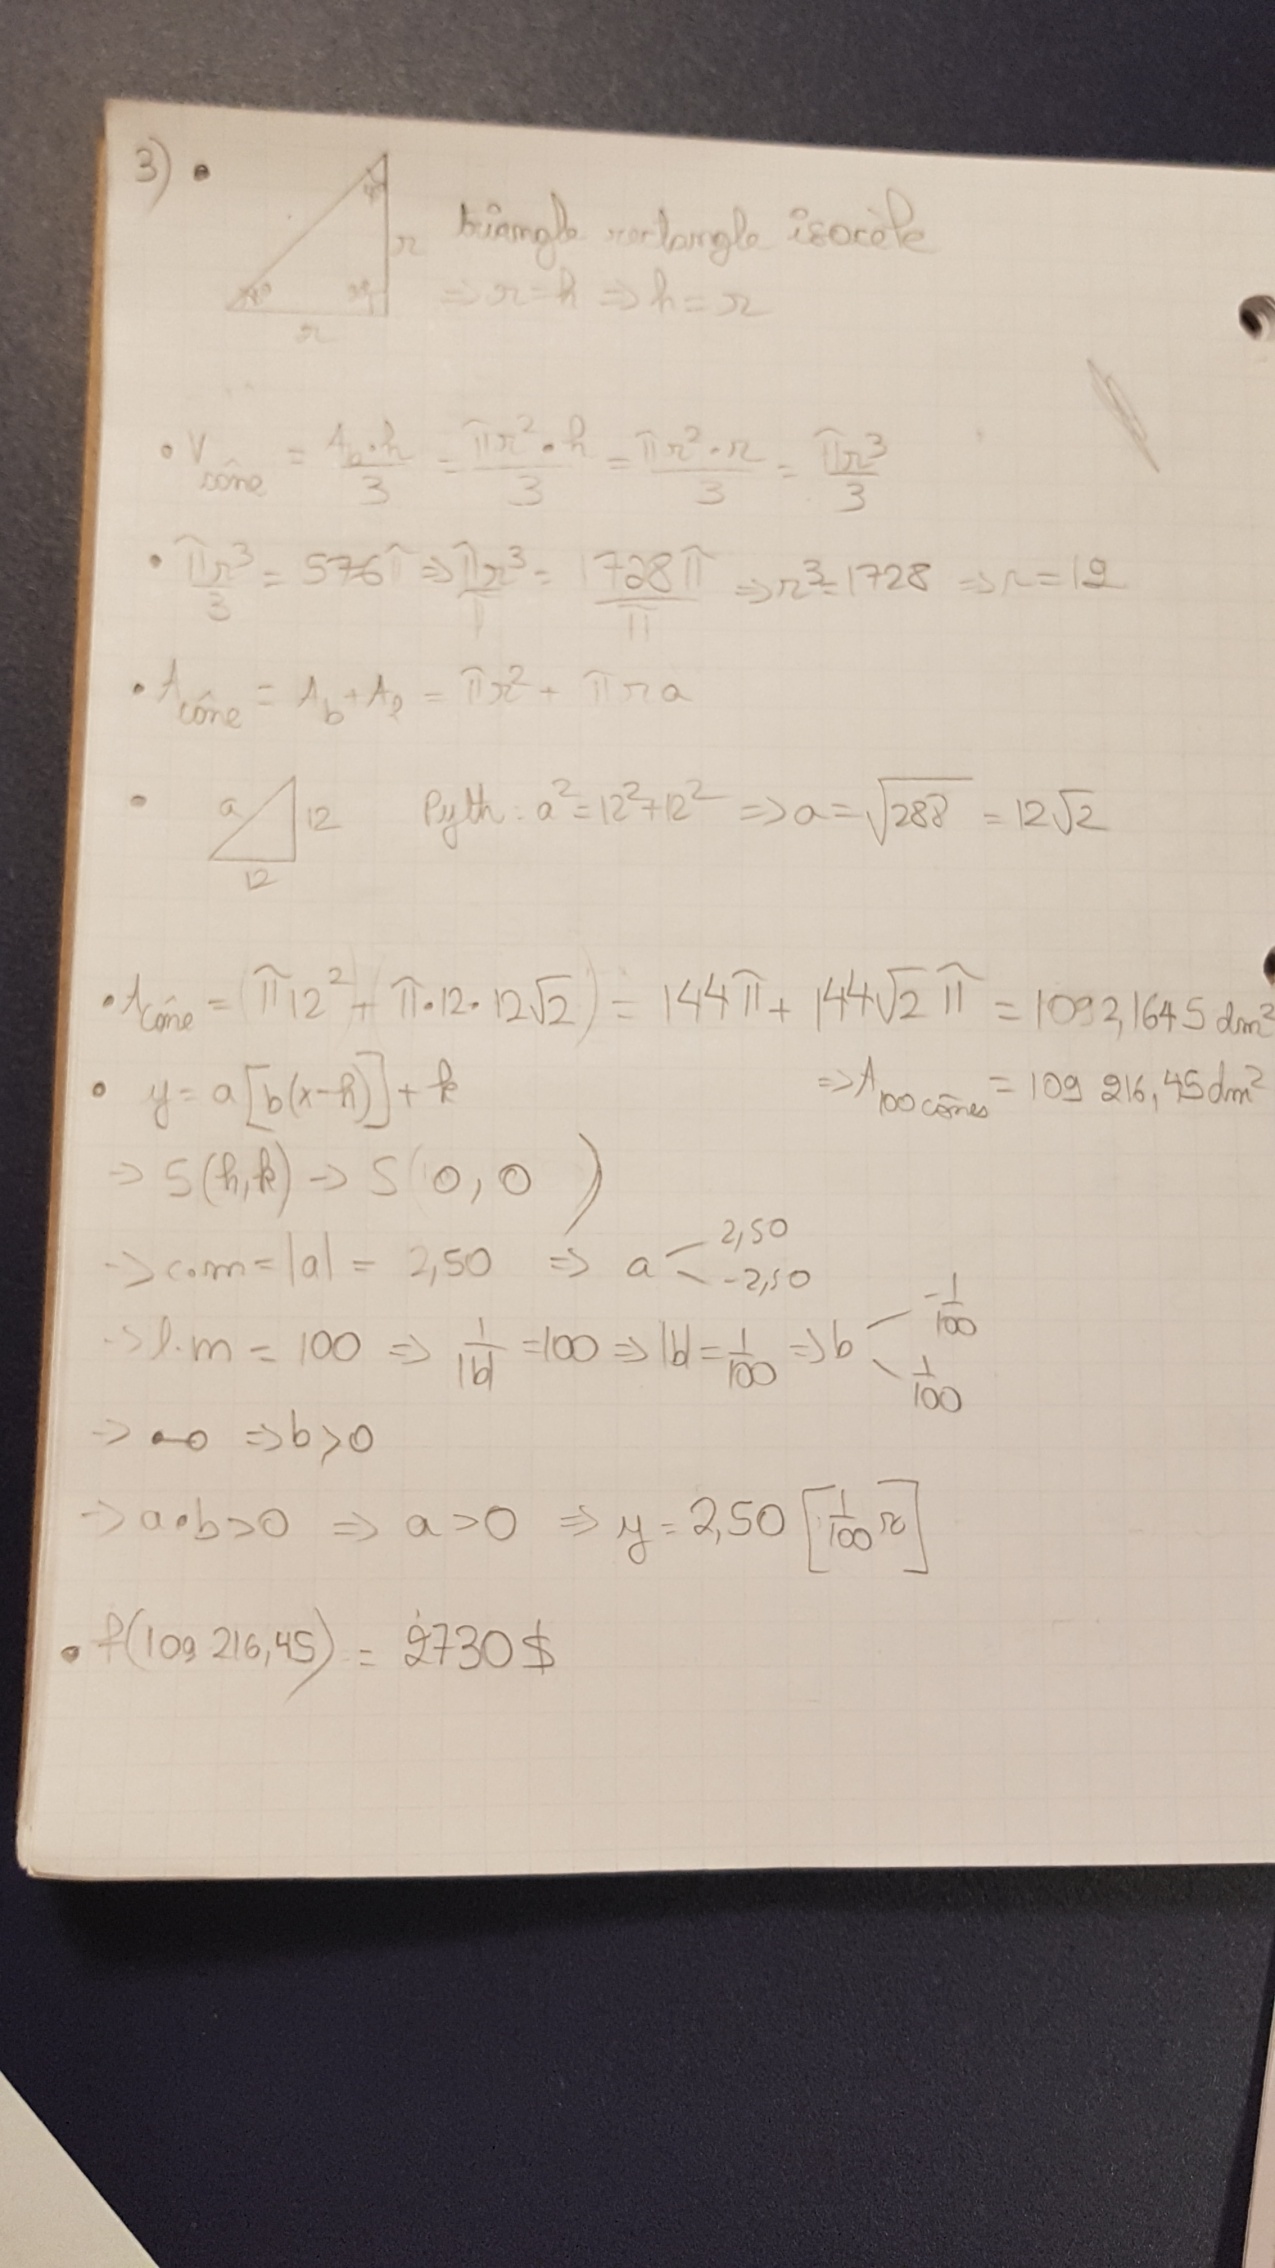 3) •
45° r triangle rectangle isocèle
45° 90° ⇒ r=h ⇒ h=r
r
• V cône = Ab•h/3 = πr²•h/3 = πr²•r/3 = πr³/3
• πr³/3 = 576π ⇒ πr³/π = 1728π/π ⇒ r³=1728 ⇒ r=12
• A cône = Ab+Al = πr² + πra
• a 12 Pyth: a²=12²+12² ⇒ a=√288 = 12√2
12
• A cône = (π12² + π•12•12√2) = 144π + 144√2π = 1092,1645 dm²
• y= a[b(x-h)]+k ⇒ A 100 cônes = 109 216,45 dm²
⇒ S(h,k) → S(0,0)
→ c.m = |a| = 2,50 ⇒ a 2,50 -2,50
→ l.m = 100 ⇒ 1/|b| =100 ⇒ |b|=1/100 ⇒ b -1/100 1/100
→ •-o ⇒ b>0
→ a•b>0 ⇒ a>0 ⇒ y=2,50[1/100 x]
• f(109 216,45) = 2730$